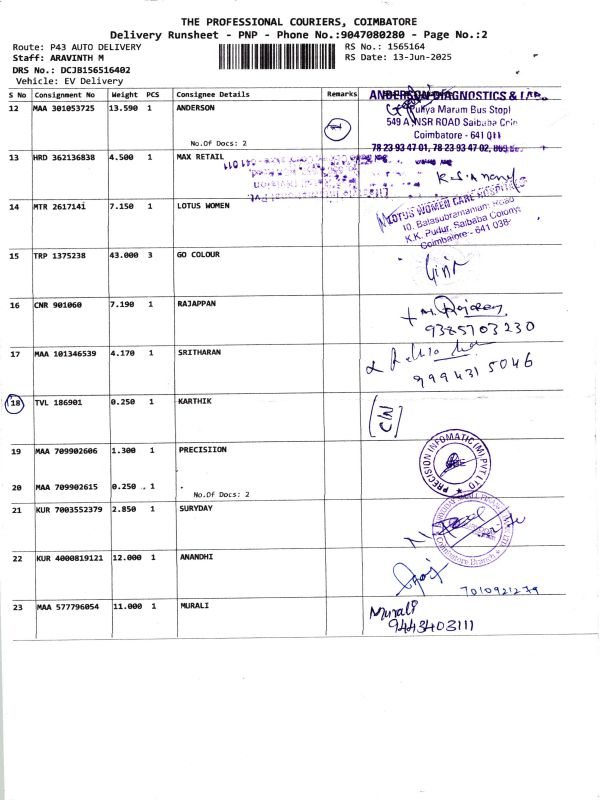 THE PROFESSIONAL COURIERS, COIMBATORE
Delivery Runsheet - PNP - Phone No.:9047080280 - Page No.:2
Route: P43 AUTO DELIVERY RS No.: 1565164
Staff: ARAVINTH M RS Date: 13-Jun-2025
DRS No.: DCJB156516402
Vehicle: EV Delivery
S No Consignment No Weight PCS Consignee Details Remarks
12 MAA 301053725 13.590 1 ANDERSON
No.Of Docs: 2
ANDERSON DIAGNOSTICS &
Maram Bus Stop
549 A NSR ROAD Saibaba
Coimbatore - 641 011
78 23 93 47 01, 78 23 93 47 02,
13 HRD 362136838 4.500 1 MAX RETAIL
14 MTR 2617141 7.150 1 LOTUS WOMEN
LOTUS WOMEN CARE HOSPITAL
10, Balasubramaniam Road
K.K. Pudur, Saibaba Colony
Coimbatore - 641 038
15 TRP 1375238 43.000 3 GO COLOUR
16 CNR 901060 7.190 1 RAJAPPAN
9385703230
17 MAA 101346539 4.170 1 SRITHARAN
9994315046
18 TVL 186901 0.250 1 KARTHIK
19 MAA 709902606 1.300 1 PRECISIION
PRECISION INFOMATIC (M) PVT LTD
20 MAA 709902615 0.250 . 1 .
No.Of Docs: 2
21 KUR 7003552379 2.850 1 SURYDAY
Coimbatore Branch
22 KUR 4000819121 12.000 1 ANANDHI
7010921279
23 MAA 577796054 11.000 1 MURALI
Murali
9443403111